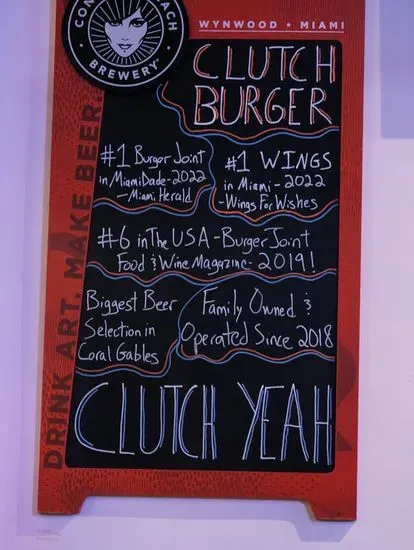 BREWERY
WYNWOOD • MIAMI
DRINK ART. MAKE BEER.
CLUTCH
BURGER
#1 Burger Joint
in Miami Dade - 2022
- Miami Herald
#1 WINGS
in Miami - 2022
- Wings For Wishes
#6 in The USA - Burger Joint
Food & Wine Magazine - 2019!
Biggest Beer
Selection in
Coral Gables
Family Owned &
Operated Since 2018
CLUTCH YEAH